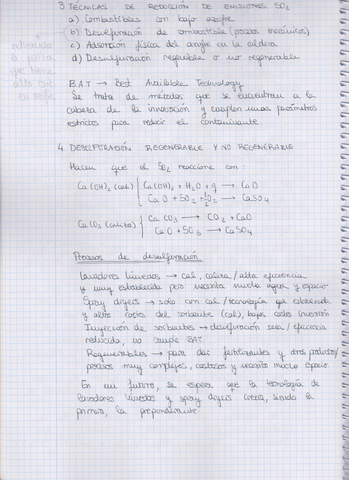 3 TECNICAS DE REDUCCIÓN DE EMISIONES SO2
a) Combustibles con bajo azufre
b) Desulfuración de combustible (procesos mecánicos)
c) Adsorción física del azufre en la caldera
d) Desulfuración regenerable o no regenerable
retirando
la pirita
que tiene
alta
B.A.T → Best Available Technology
Se trata de métodos que se encuentran a la
cabeza de la innovación y cumplen unos parámetros
estrictos para reducir el contaminante
4. DESULFURACIÓN REGENERABLE Y NO REGENERABLE
Hacen que el SO2 reaccione con:
Ca(OH)2 (cal) Ca(OH)2 + H2O + q → CaO
CaO + SO2 + 1/2 O2 → CaSO4
CaCO3 (caliza) CaCO3 → CO2 + CaO
CaO + SO3 → CaSO4
Procesos de desulfuración
Lavadores húmedos → cal, caliza / alta eficiencia
y muy establecida pero necesita mucha agua y espacio
Spray dryers → solo con cal / tecnología ya establecida
y altos costes del sorbente (cal), bajos costes inversión
Inyección de sorbentes → desulfuración seca / eficiencia
reducida, no cumple BAT.
Regenerables → para dar fertilizantes y otros productos/
procesos muy complejos, costosos y necesita mucho espacio.
En un futuro, se espera que la tecnología de
lavadores húmedos y spray dryers crezca, siendo la
primera, la preponderante.